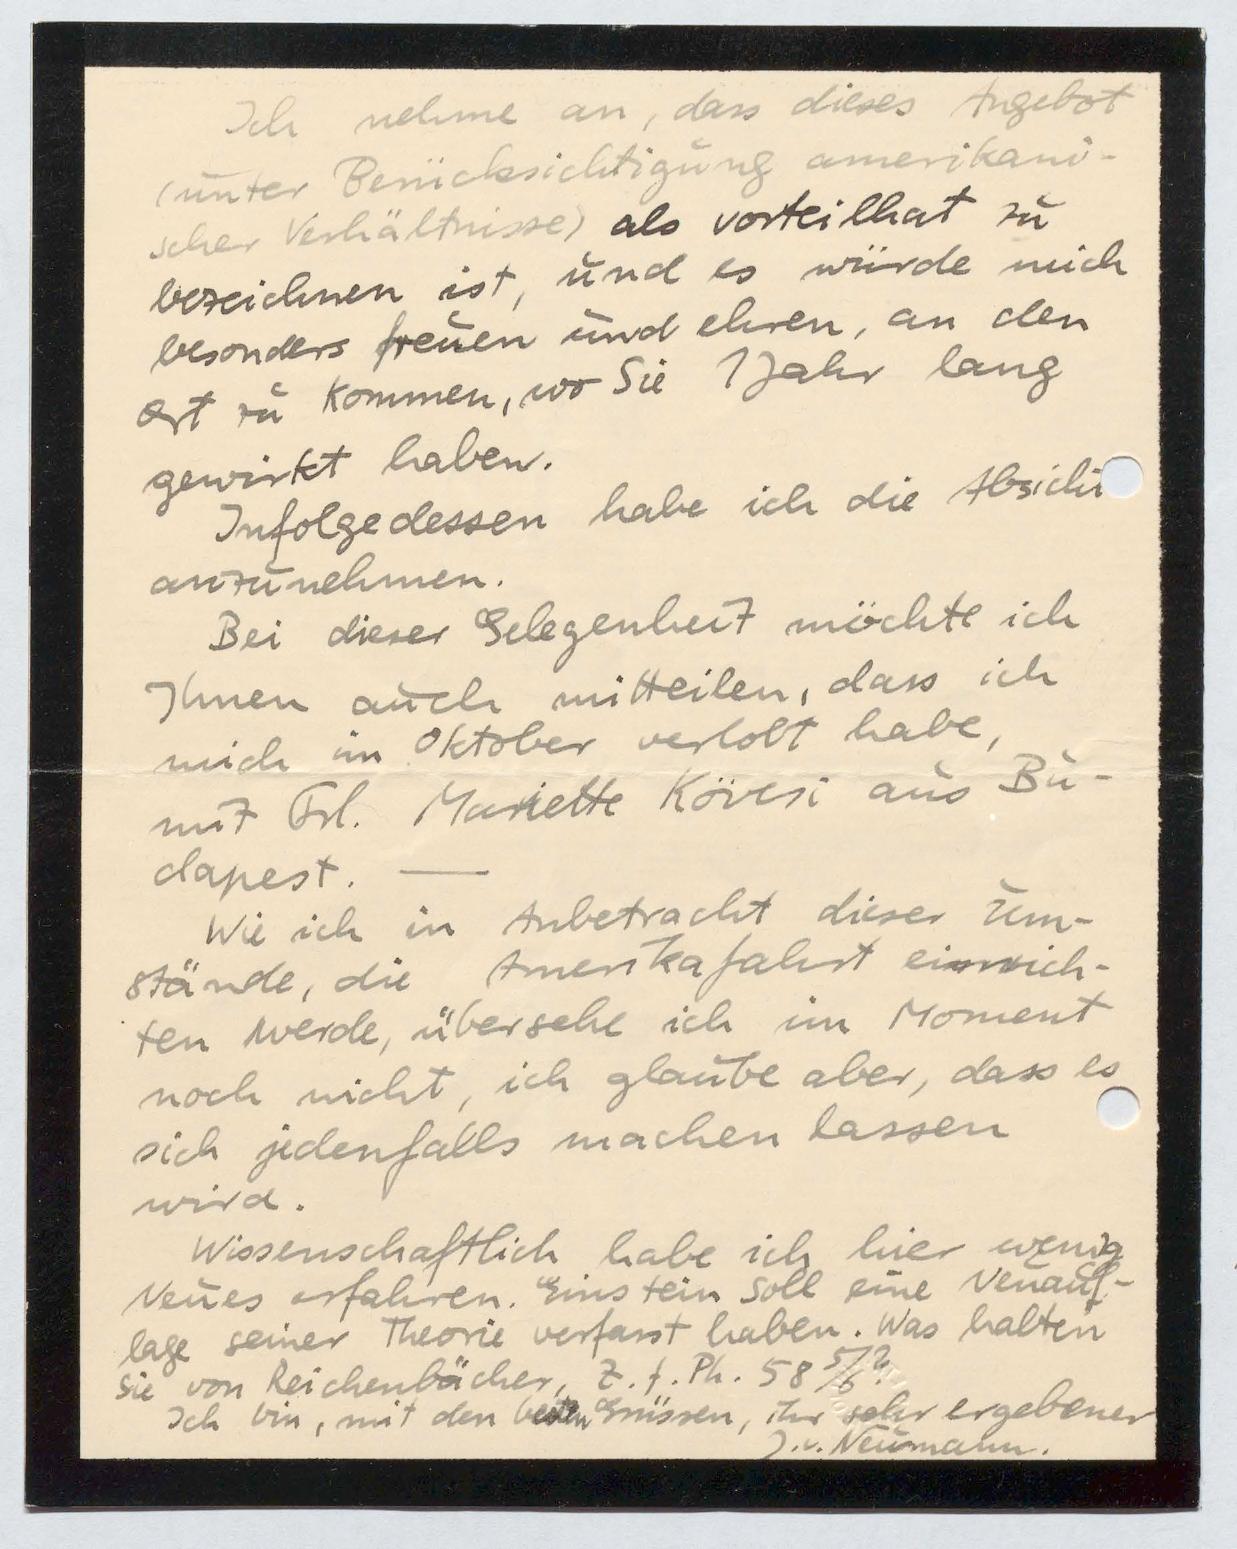 Ich nehme an, dass dieses Angebot
(unter Berücksichtigung amerikani-
scher Verhältnisse) als vorteilhat zu
bezeichnen ist, und es würde mich
besonders freuen und ehren, an den
Ort zu kommen, wo Sie 1 Jahr lang
gewirkt haben.
Infolgedessen habe ich die Absicht
anzunehmen.
Bei dieser Gelegenheit möchte ich
Ihnen auch mitteilen, dass ich
mich im Oktober verlobt habe,
mit Frl. Mariette Kövesi aus Bu-
dapest. —
Wie ich in Anbetracht dieser Um-
stände, die Amerikafahrt einrich-
ten werde, übersehe ich im Moment
noch nicht, ich glaube aber, dass es
sich jedenfalls machen lassen
wird.
Wissenschaftlich habe ich hier wenig
Neues erfahren. Einstein soll eine Neuauf-
lage seiner Theorie verfasst haben. Was halten
sie von Reichenbächer, Z. f. Ph. 58 5/6?
Ich bin, mit den besten Grüssen, ihr sehr ergebener
J. v. Neumann.